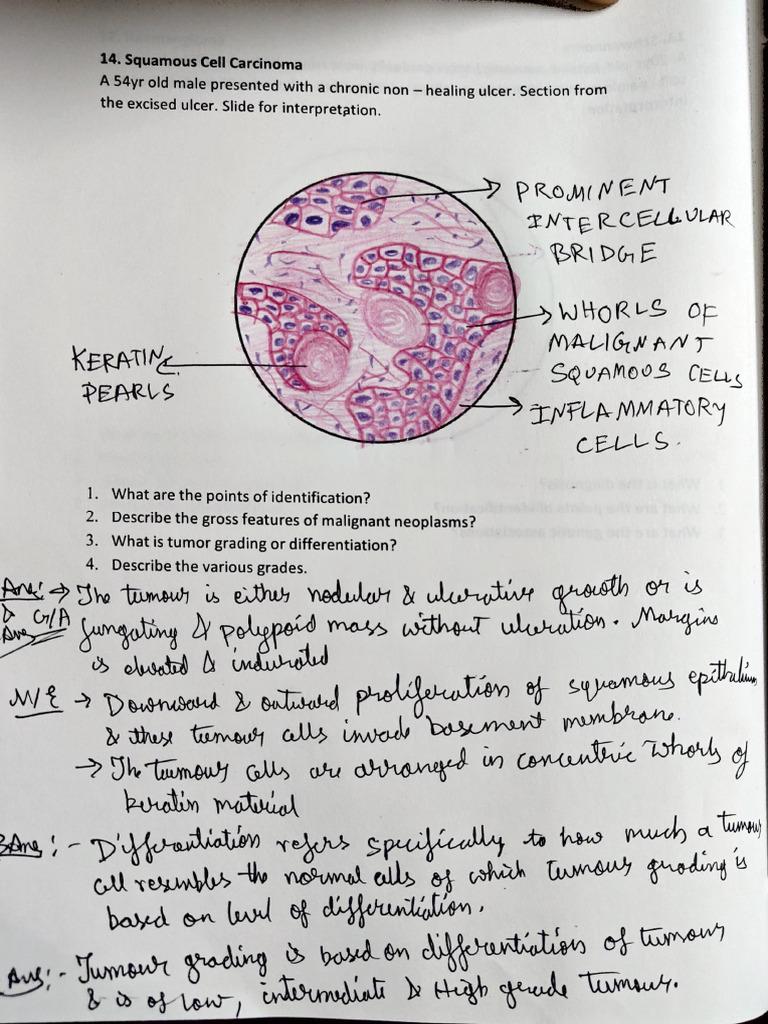 14. Squamous Cell Carcinoma
A 54yr old male presented with a chronic non – healing ulcer. Section from
the excised ulcer. Slide for interpretation.
PROMINENT
INTERCELLULAR
BRIDGE
WHORLS OF
MALIGNANT
SQUAMOUS CELLS
KERATIN
PEARLS
INFLAMMATORY
CELLS.
1. What are the points of identification?
2. Describe the gross features of malignant neoplasms?
3. What is tumor grading or differentiation?
4. Describe the various grades.
Ans: → The tumour is either nodular & ulcerative growth or is
G/A fungating & polypoid mass without ulceration. Margins
Ans is elevated & indurated
M/E → Downward & outward proliferation of squamous epithelium
& these tumour cells invade basement membrane.
→ The tumour cells are arranged in concentric whorls of
keratin material
3 Ans: - Differentiation refers specifically to how much a tumour
cell resembles the normal cells of which tumour grading is
based on level of differentiation.
Ans: - Tumour grading is based on differentiation of tumour
& is of low, intermediate & High grade tumour.